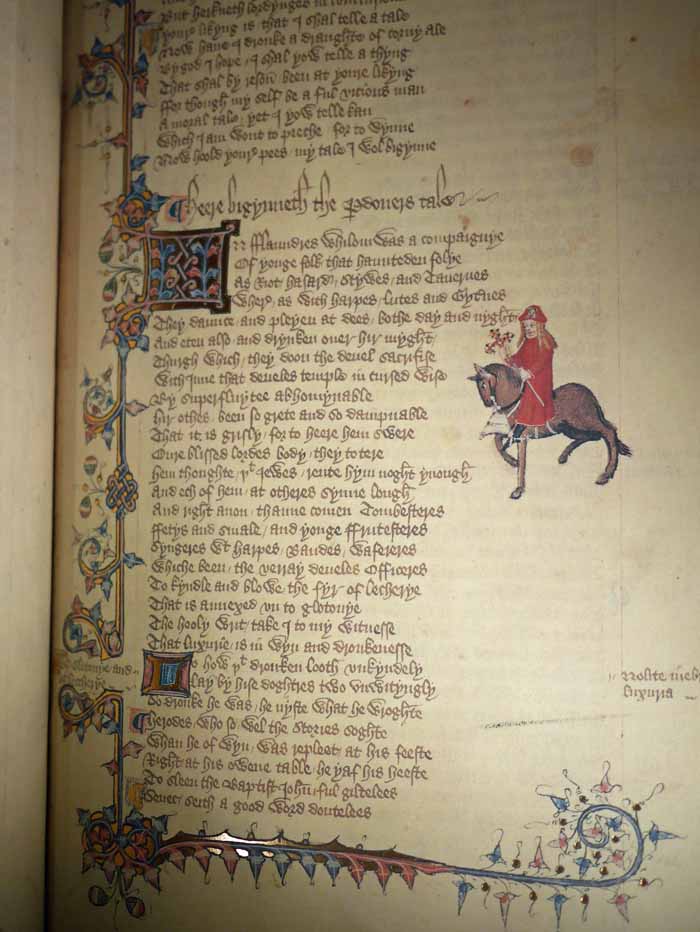 But herkneth lordynges in conclusioun
youre likyng is that I shal telle a tale
Now haue I dronke a draughte of corny ale
By god I hope / I shal yow telle a thyng
That shal by resoun been at youre likyng
ffor though my self be a ful vicious man
A moral tale / yet I yow telle kan
Which I am wont to preche for to wynne
Now hoold youre pees / my tale I wol bigynne
Heere bigynneth the Pdoners tale
In fflaundres whilom was a compaignye
Of yonge folk that haunteden folye
As Riot hasard / Stywes / and Tauernes
Wher as with harpes / Lutes and Gyternes
They daunce / and pleyen at dees / bothe day and nyght
And eten also / and drynken ouer hir myght
Thurgh which / they doon the deuel sacrifise
With Inne that deueles temple in cursed wise
By superfluytee abhomynable
Hir othes / been so grete and so dampnable
That it is grisly / for to heere hem swere
Oure blissed lordes body / they to tere
hem thoughte yt Iewes / rente hym noght ynough
And ech of hem / at otheres synne lough
And right anon / thanne comen Tombesteres
ffetys and smale / and yonge ffrutesteres
Syngeres wt harpes / Baudes / wafereres
Whiche been / the verray deueles Officeres
To kyndle and blowe the fyr of lecherye
That is annexed vn to glotonye
The hooly writ / take I to my witnesse
That luxurie / is in wyn and dronkenesse
Lo how yt dronken looth vnkyndely
Lay by hise doghtres two vnwityngly
So dronke he was / he nyste what he wroghte
Herodes / who so wel the Stories soghte
Whan he of wyn / was repleet at his feeste
Right at his owene table / he yaf his heeste
To sleen the Baptist Iohn ful giltelees
Senec seith a good word doutelees
Nolite
luxuria